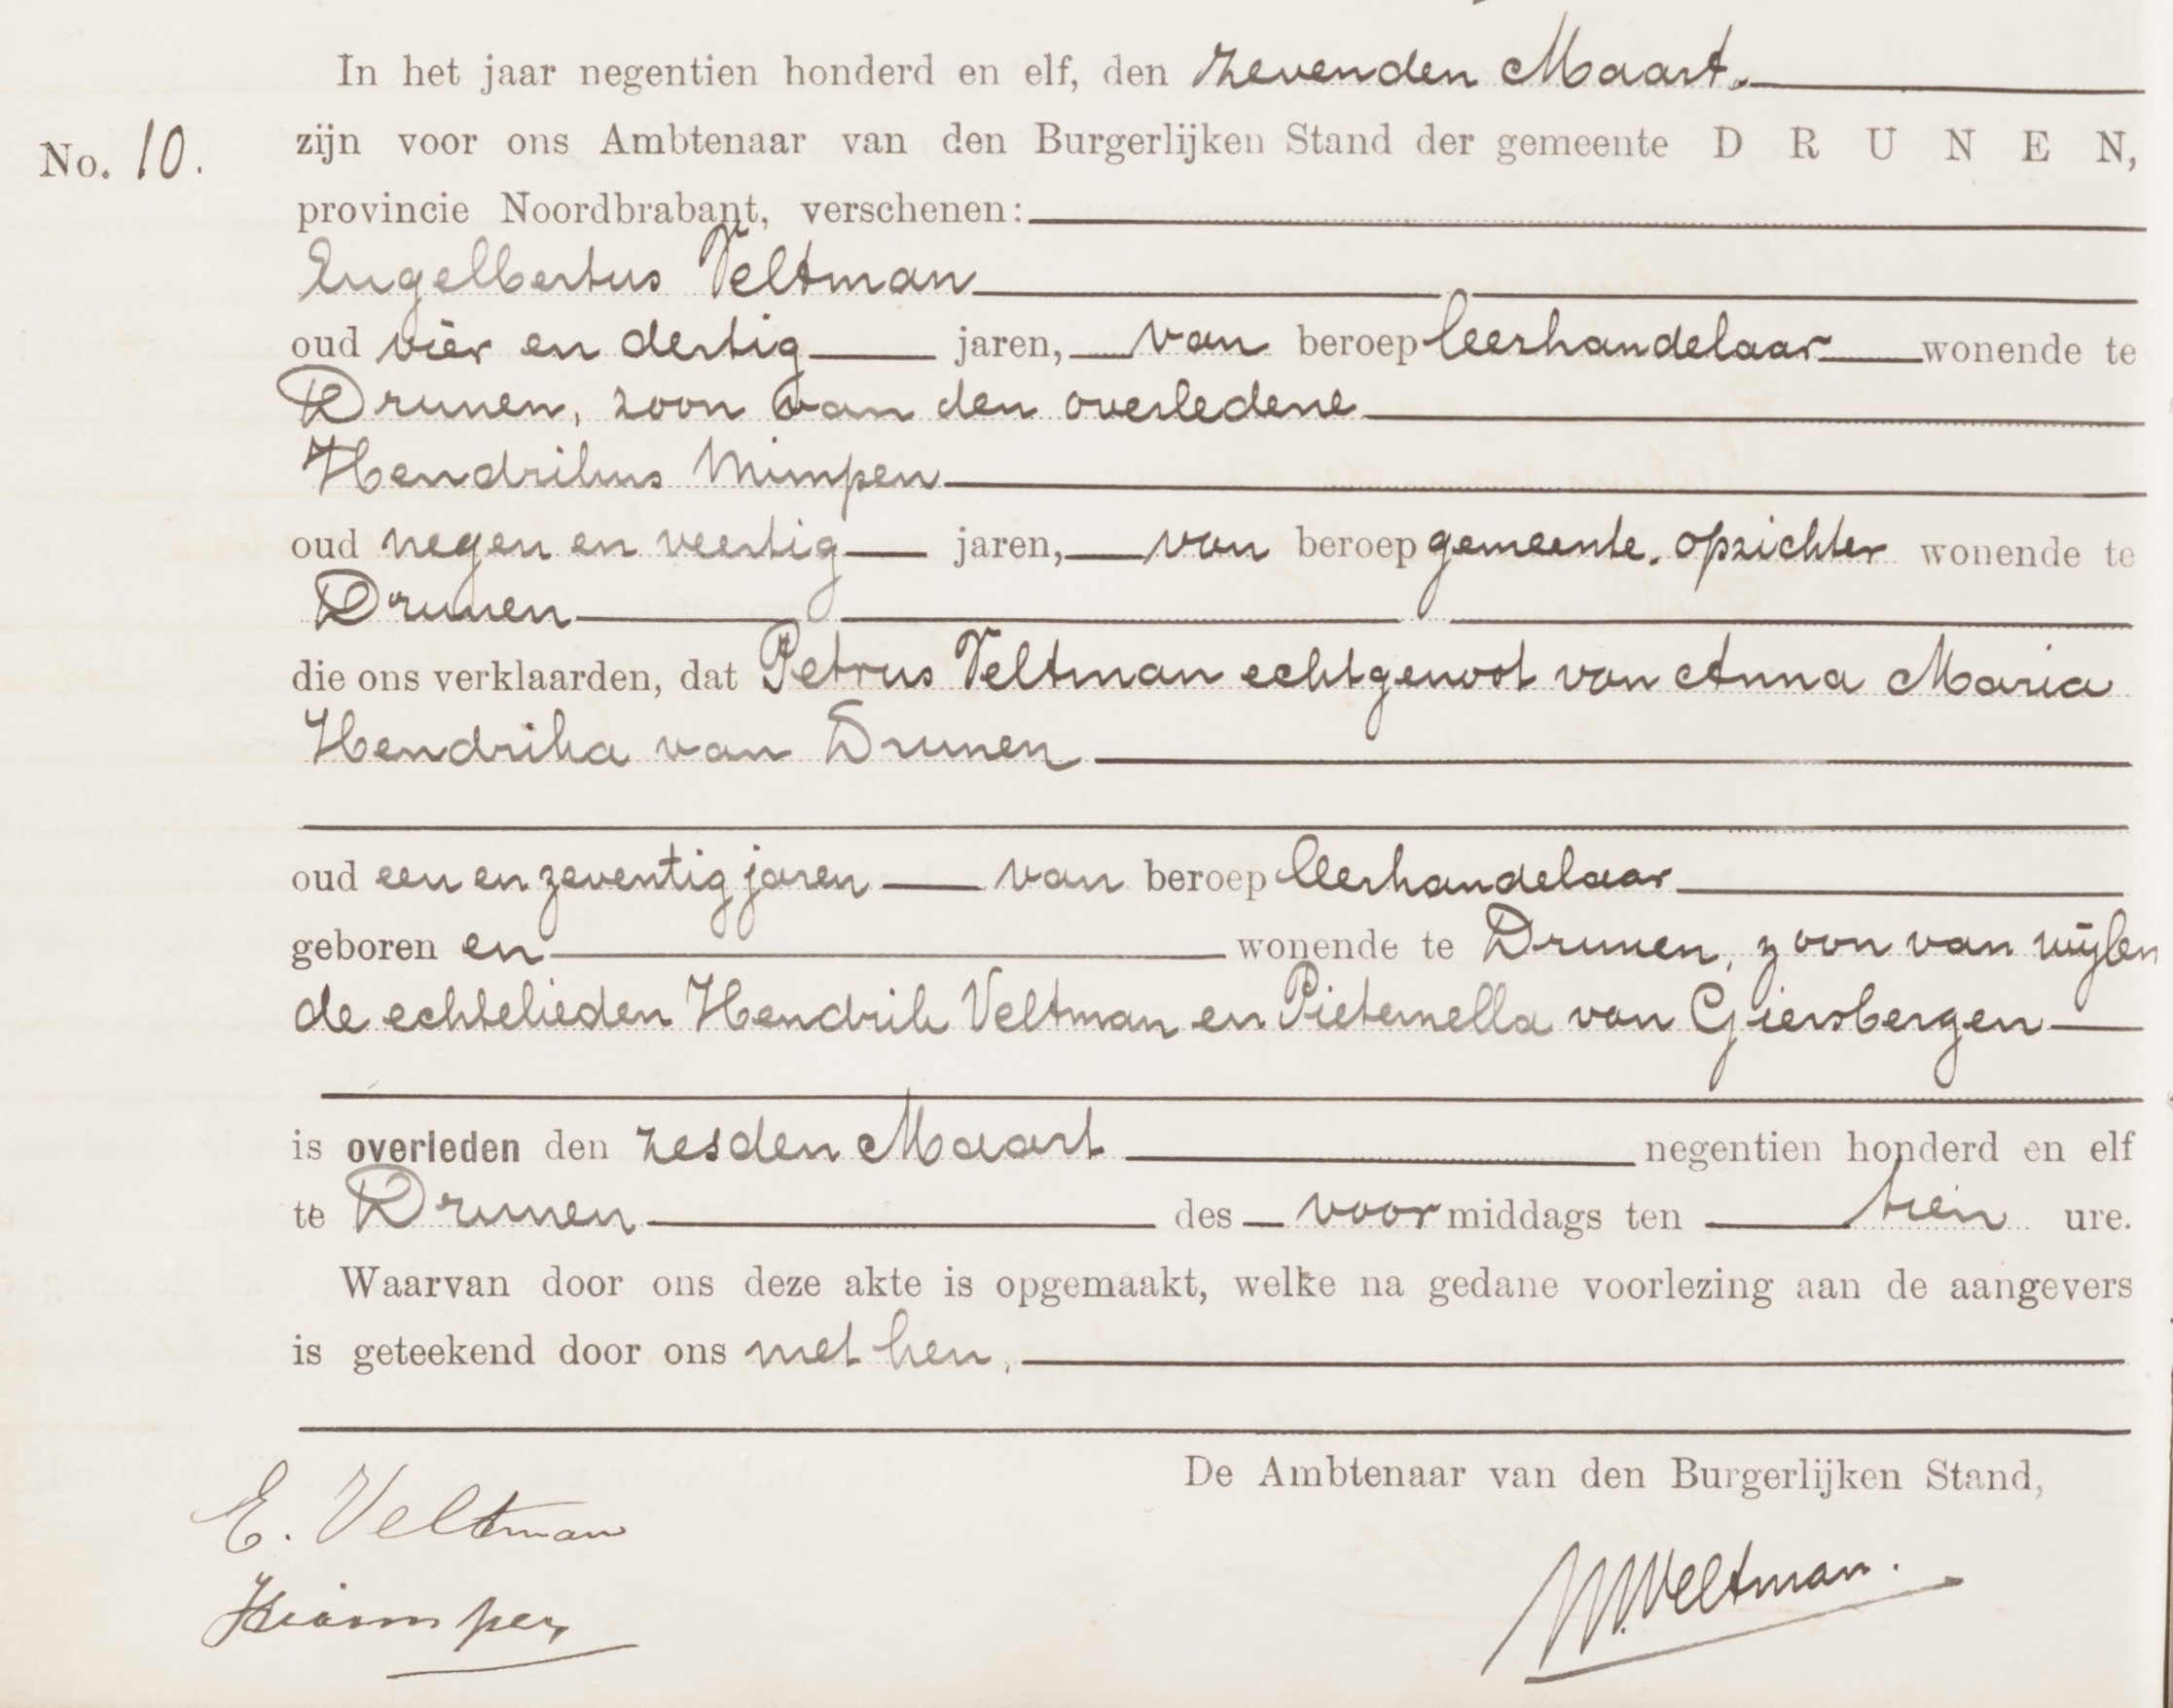 In het jaar negentien honderd en elf, den zevenden Maart.
No. 10. zijn voor ons Ambtenaar van den Burgerlijken Stand der gemeente DRUNEN,
provincie Noordbrabant, verschenen:
Engelbertus Veltman
oud vier en dertig jaren, van beroep leerhandelaar wonende te
Drunen, zoon van den overledene
Hendrikus Mimpen
oud negen en veertig jaren, van beroep gemeente. opzichter wonende te
Drunen
die ons verklaarden, dat Petrus Veltman echtgenoot van Anna Maria
Hendrika van Drunen
oud een en zeventig jaren van beroep leerhandelaar
geboren en wonende te Drunen, zoon van wijlen
de echtelieden Hendrik Veltman en Pieternella van Giersbergen
is overleden den zesden Maart negentien honderd en elf
te Drunen des voormiddags ten tien ure.
Waarvan door ons deze akte is opgemaakt, welke na gedane voorlezing aan de aangevers
is geteekend door ons met hen.
De Ambtenaar van den Burgerlijken Stand,
E. Veltman
Veltman.